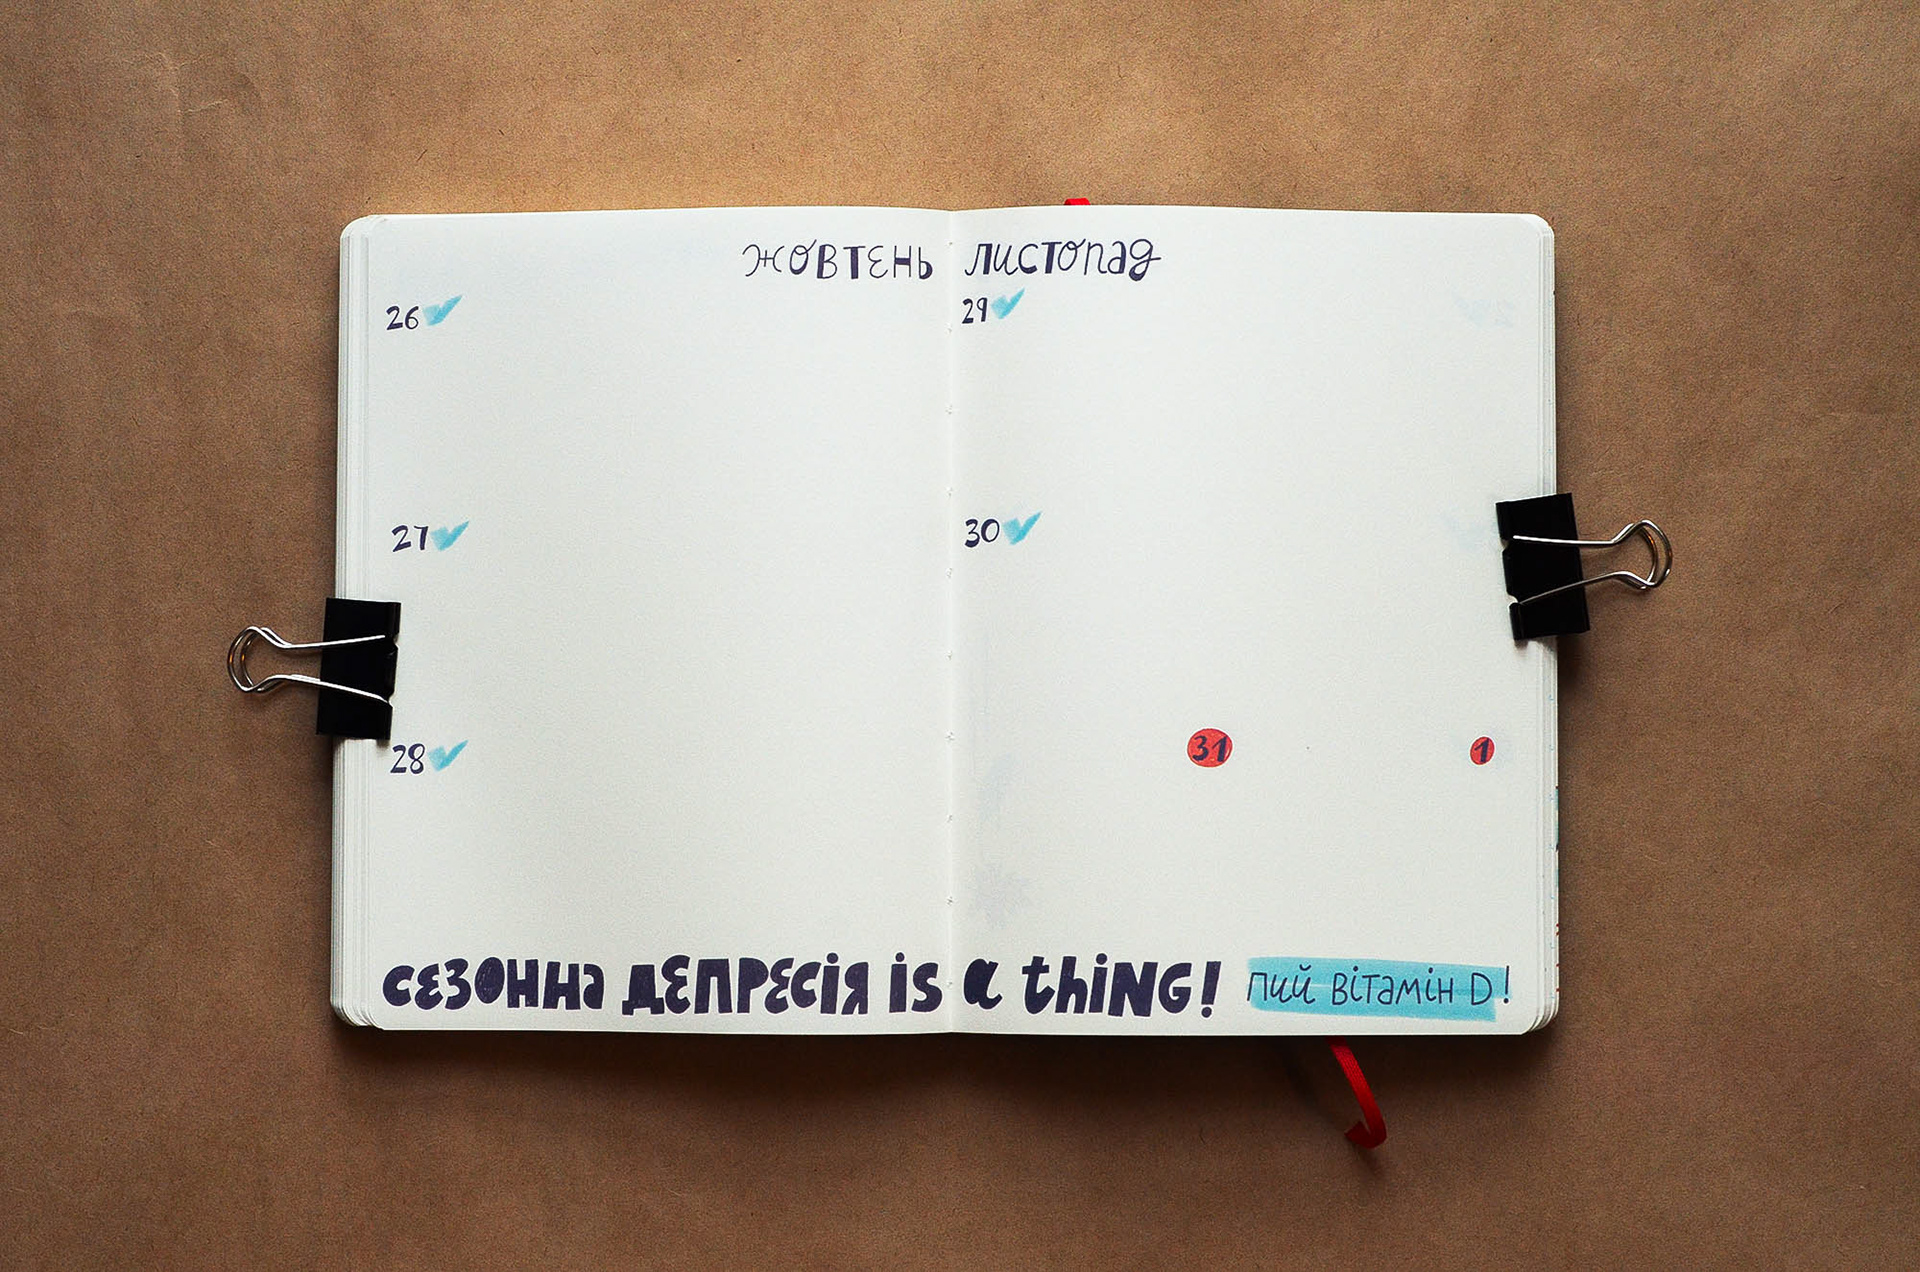 жовтень листопад
26
27
28
29
30
31
1
сезонна депресія is a thing!
пий вітамін D!